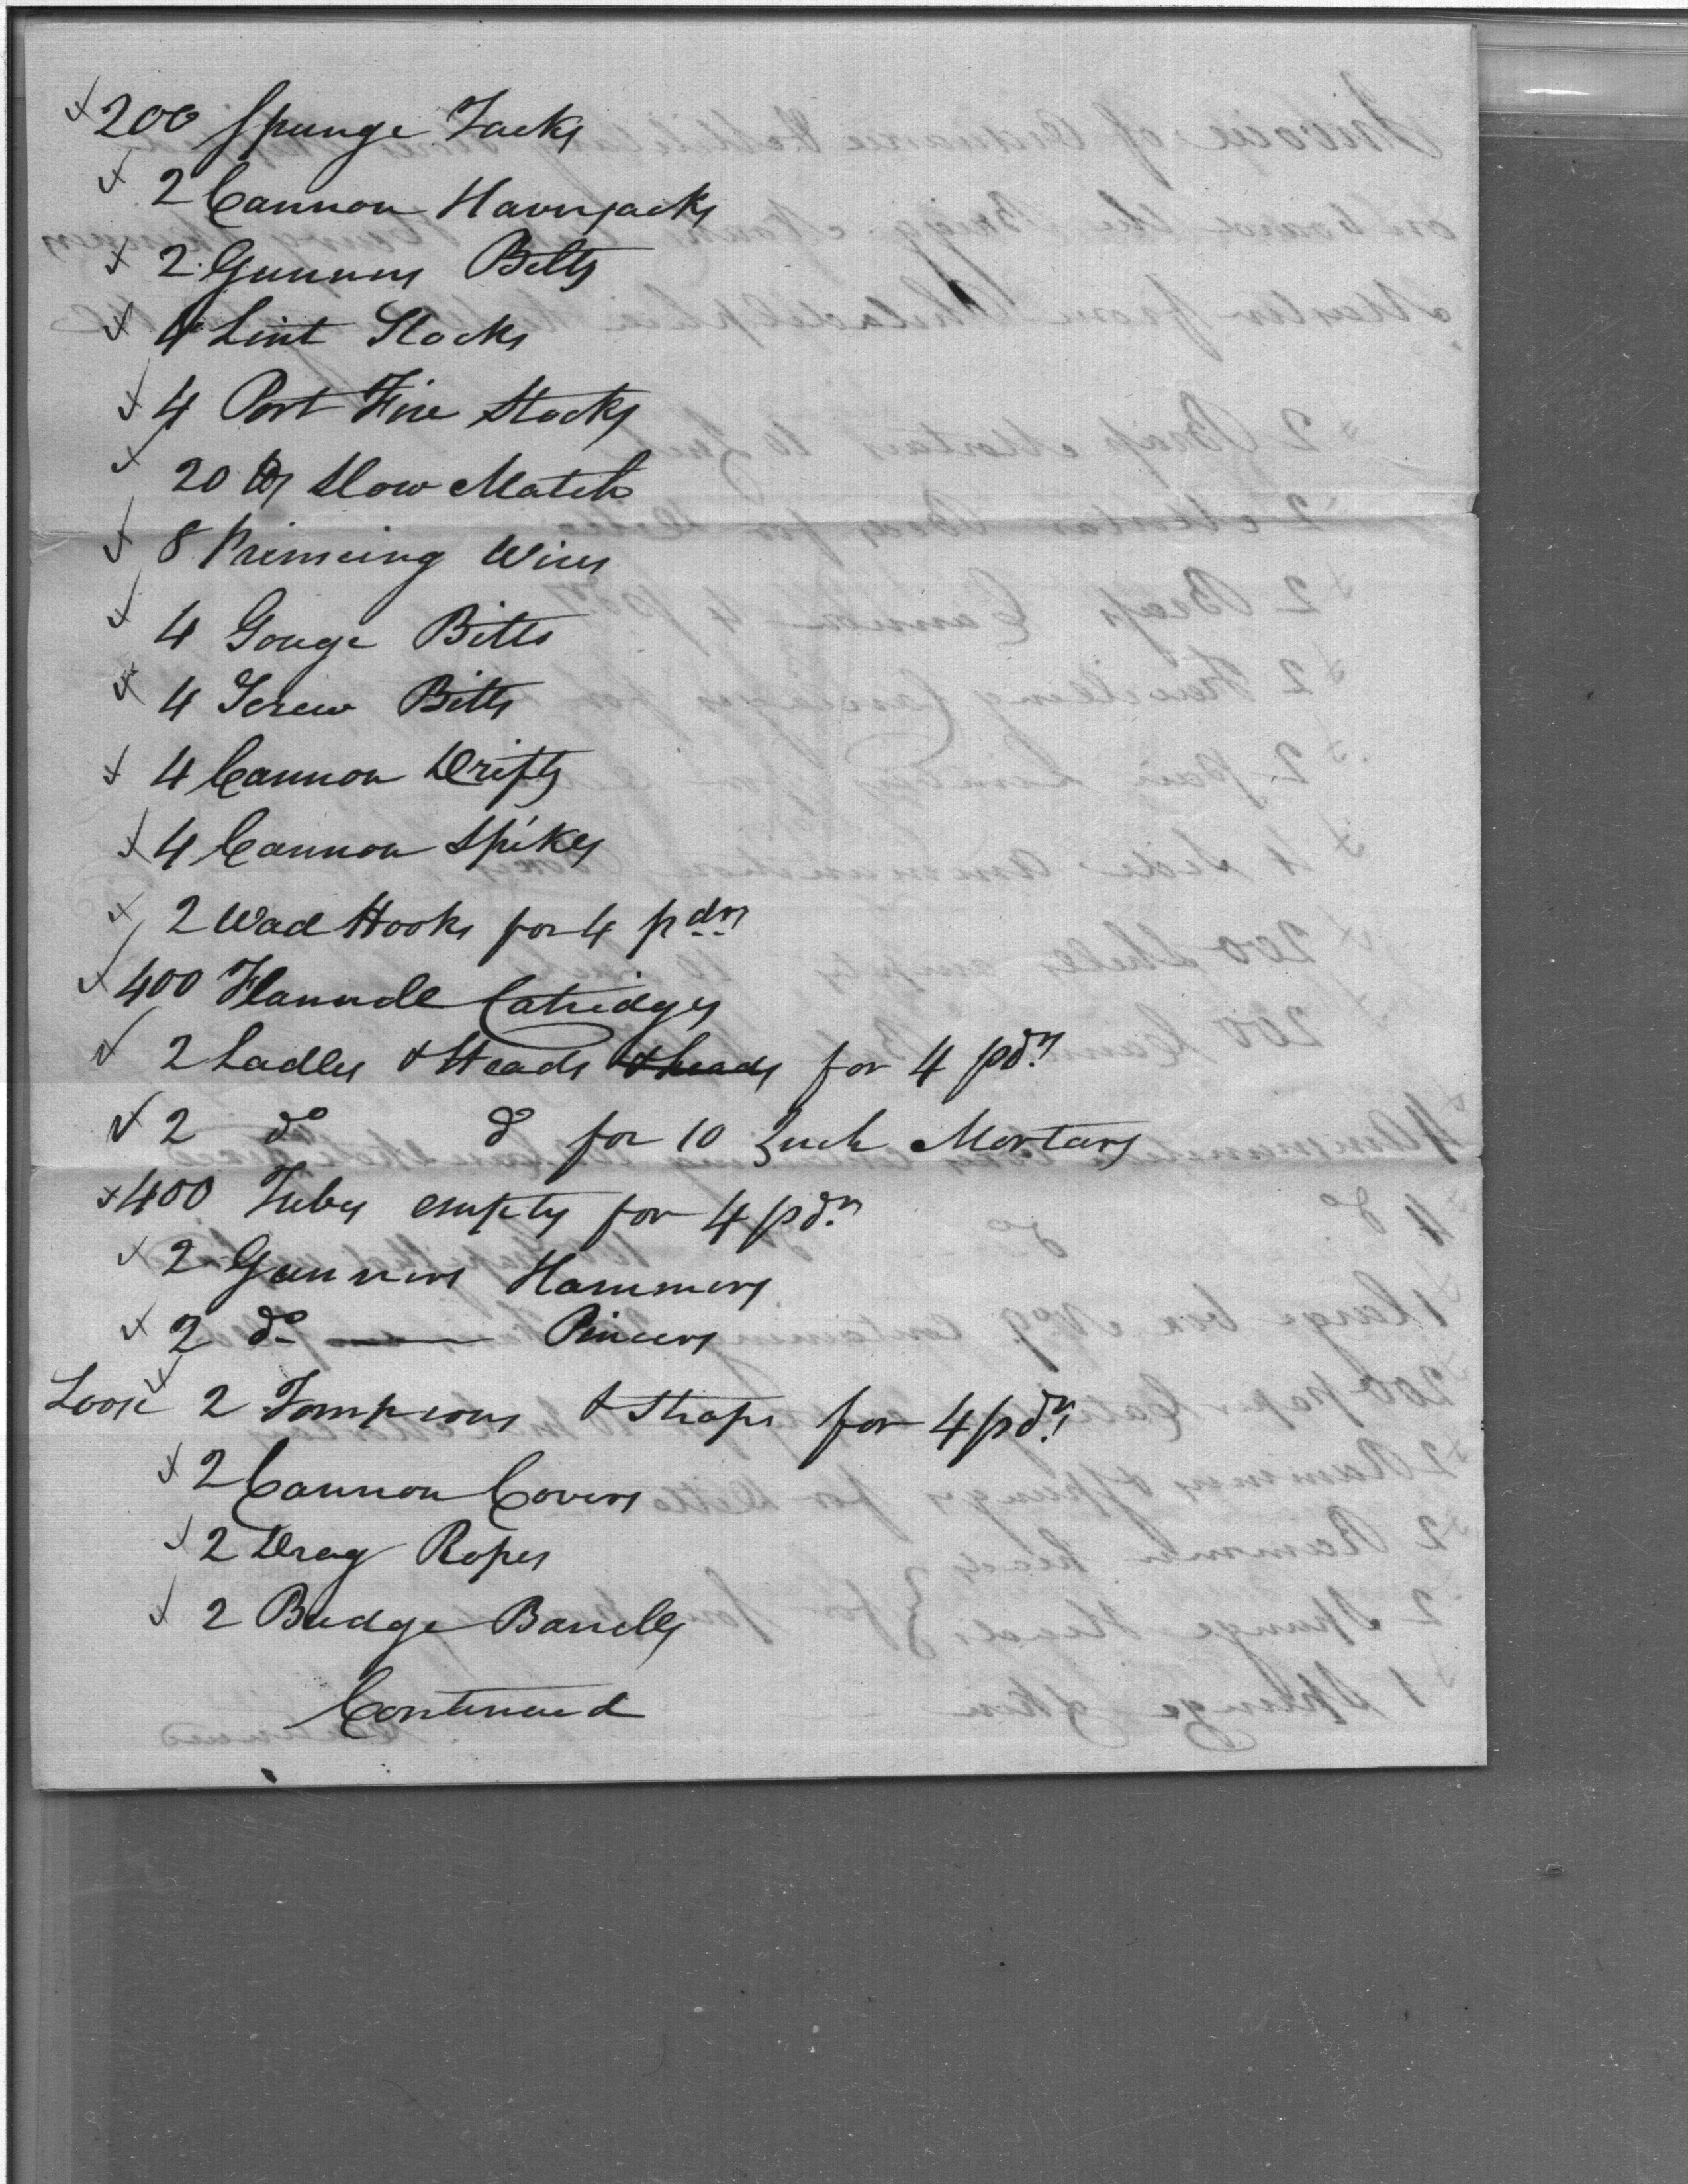 200 Spunge Tacks
2 Cannon Haversacks
2 Gunners Belts
4 Lint Stocks
4 Port Fire Stocks
20 lb Slow Match
8 Primeing Wires
4 Gouge Bitts
4 Screw Bitts
4 Cannon Drifts
4 Cannon Spikes
2 Wad Hooks for 4 pdrs
400 Flannell Catridges
2 Ladles & Heads & heads for 4 pdrs
2 do do for 10 Inch Mortars
400 Tubes empty for 4 pdrs
2 Gunners Hammers
2 do — Pincers
Loose 2 Tompions & Straps for 4 pdrs
2 Cannon Covers
2 Drag Ropes
2 Budge Barrells
Continued